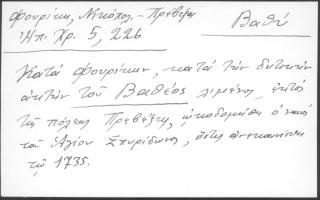 Φουρίκη, Νικόπολ. - Πρέβεζα
Ἠπ. Χρ. 5, 226
Βαθύ
Κατά Φουρίκην, κατά τήν δυτικήν
ἀκτήν τοῦ Βαθέος λιμένος, ἐκτός
τῆς πόλεως Πρεβέζης, ᾠκοδομήθη ὁ ναός
τοῦ Ἁγίου Σπυρίδωνος, ὅστις ἀνεκαινίσθη
τῷ 1735.